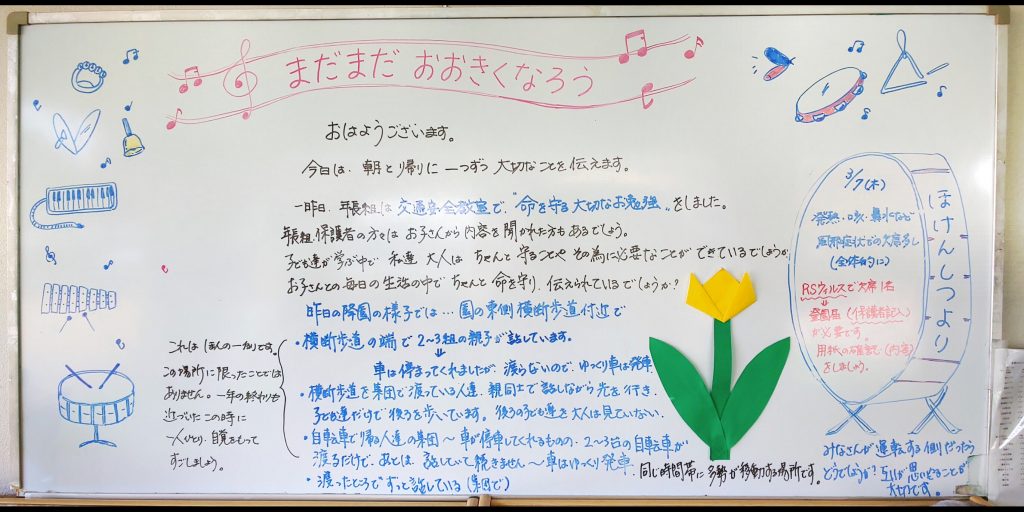 まだまだ おおきくなろう
おはようございます。
今日は、朝と帰りに 一つずつ 大切なことを伝えます。
一昨日、年長組は交通安全教室で、"命を守る大切なお勉強"をしました。
年長組保護者の方々は お子さんから内容を聞かれた方もあるでしょう。
子ども達が学ぶ中で 私達 大人は ちゃんと 守ることや その為に必要なことが できているでしょうか
お子さんとの毎日の生活の中で ちゃんと 命を守り、伝えられているでしょうか?
昨日の降園の様子では… 園の東側 横断歩道付近で
・横断歩道の端で 2~3組の親子が話しています。
車は停まってくれましたが、渡らないので、ゆっくり車は発車
・横断歩道を集団で渡っている人達、親同士で話しながら先を行き、
子ども達だけで後ろを歩いています。後ろの子ども達を大人は見ていない。
・自転車で帰る人達の集団~車が停車してくれるものの、2~3台の自転車が
渡るだけで、あとは、話していて続きません~車はゆっくり発車
・渡ったところでずっと話している(集団で)
これは ほんの一部です。
この場所に限ったことでは
ありません。一年の終わりも
近づいたこの時に
一人ひとり、自覚をもって
すごしましょう。
同じ時間帯に多勢が移動する場所です。
ほけんしつより
3/7(木)
発熱・咳・鼻水など
風邪症状での欠席多し
(全体的に)
RSウィルスで欠席1名
登園届(保護者記入)
が必要です。
用紙の確認(内容)
をしましょう。
みなさんが運転する側だったら
どうでしょうか? 互いが思いやることが
大切です。